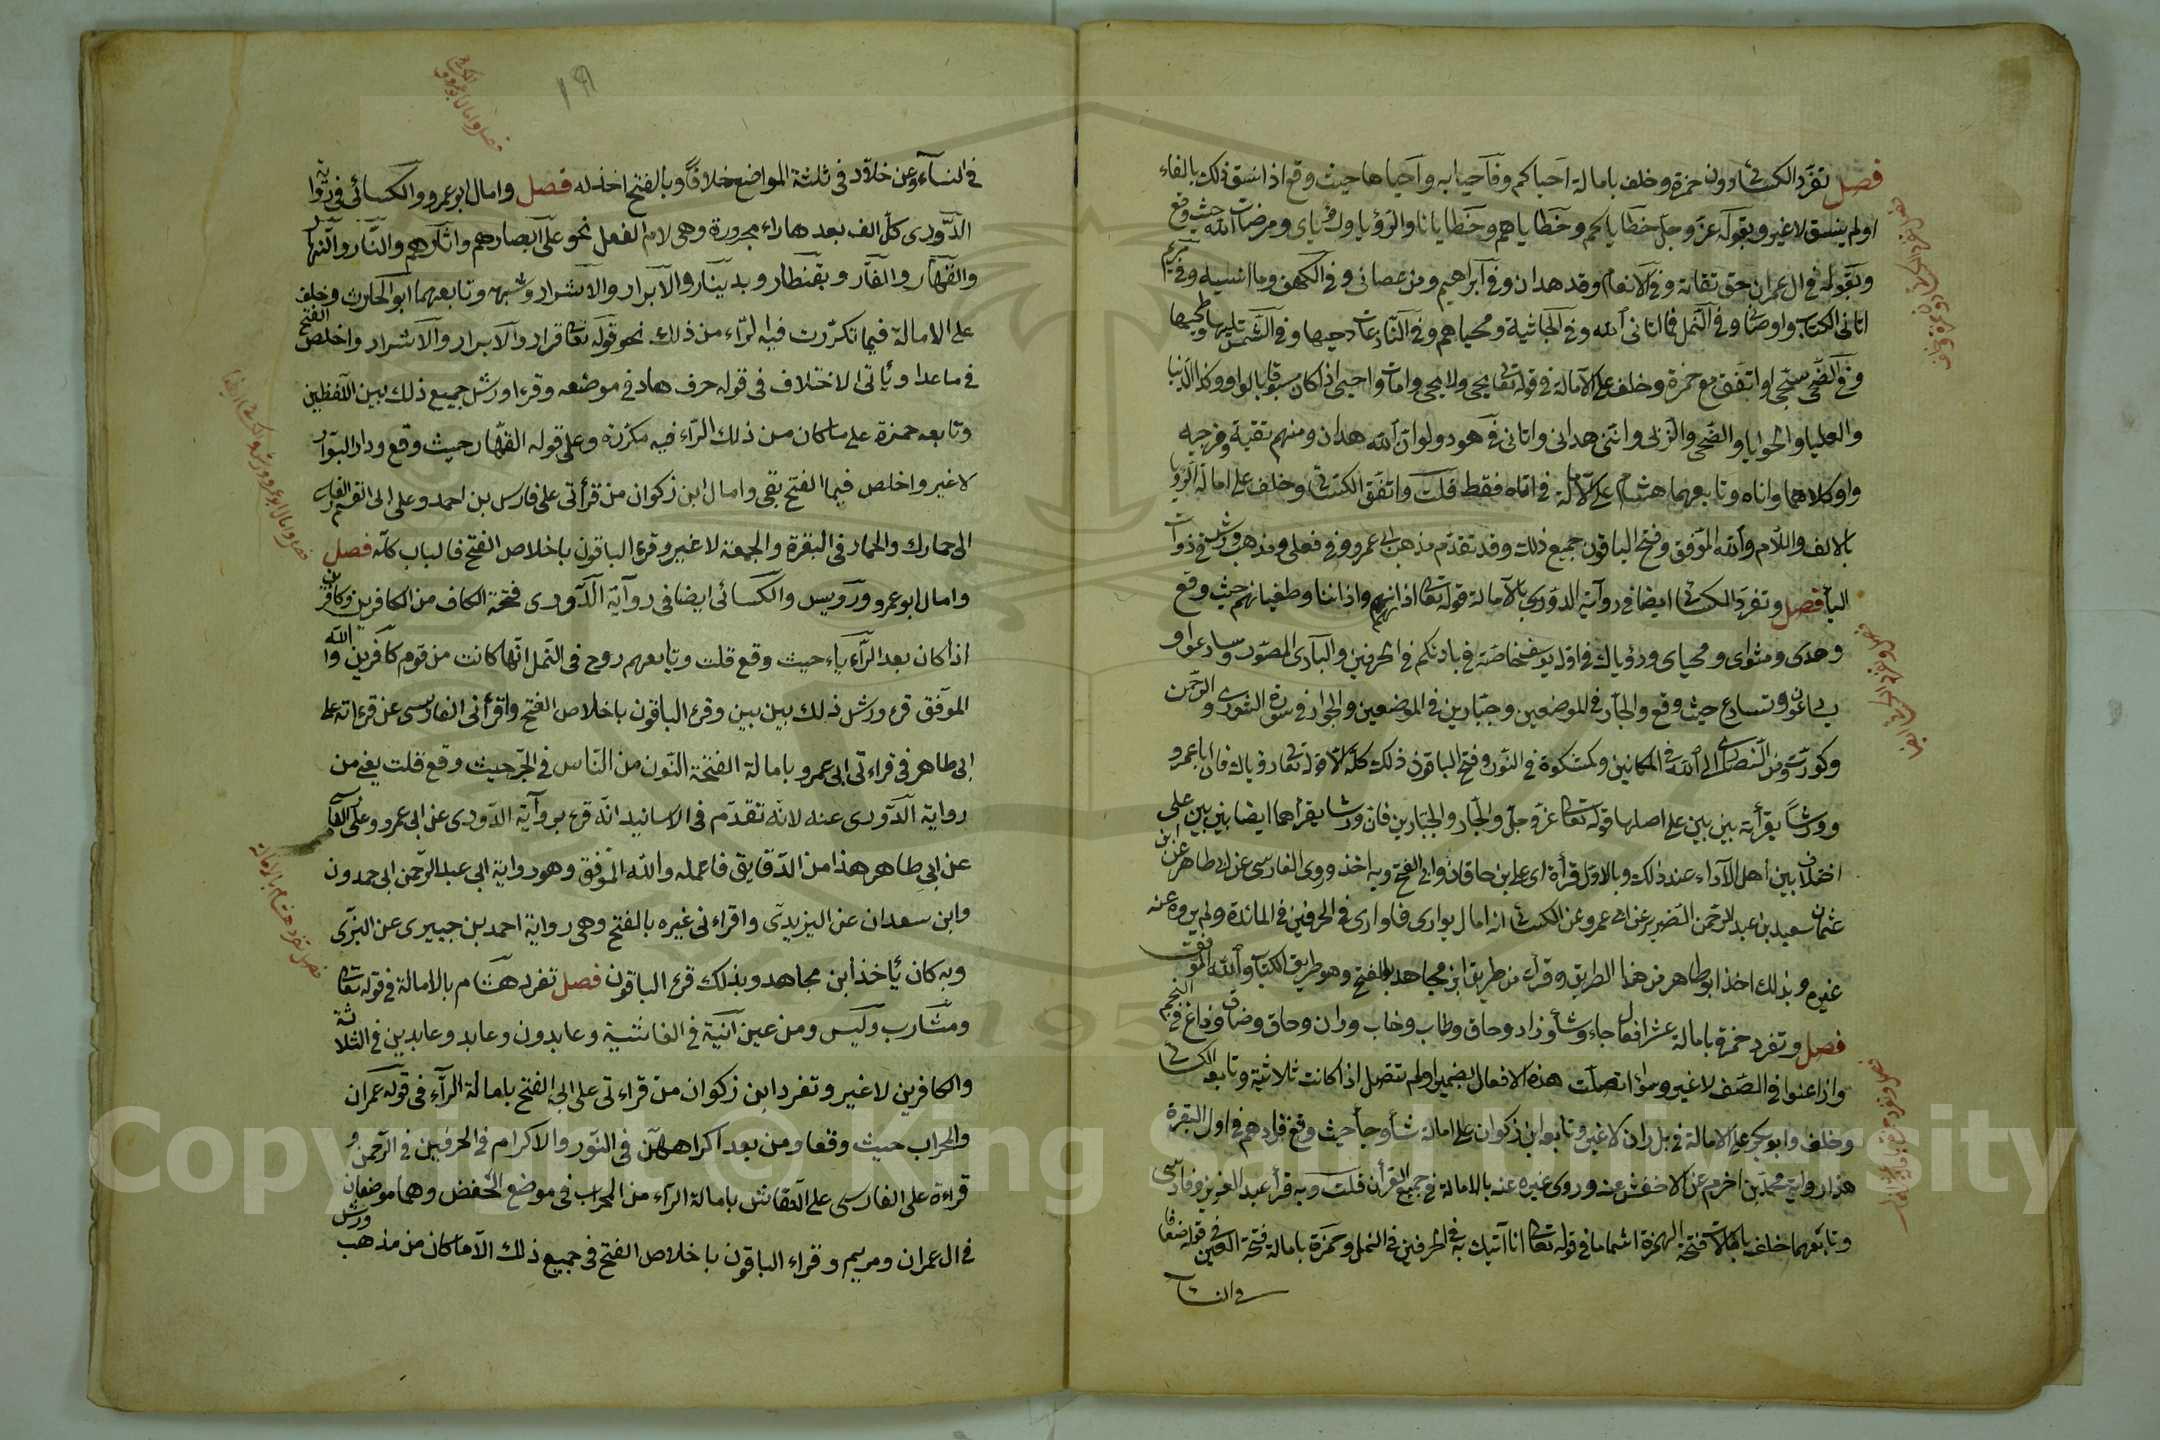 فصل تفرد الكسائي دون حمزة وخلف بامالة احياكم وفاحيا به واحياها حيث وقع اذا نسق ذلك بالفاء
اولم ينسق لا غير وبقوله عز وجل خطاياكم وخطاياهم وخطايانا والرؤيا ورؤياى ومرضات الله حيث وقع
وبقوله في ال عمران حق تقاته وفي الانعام وقد هدان وفي ابراهيم ومن عصانى وفي الكهف وما انسنيه وفي مريم
اتانى الكتاب واوصانى وفي النمل فما اتانى الله وفي الجاثية ومحياهم وفي النازعات دحيها وفي الشمس تليها وطحيها
وفي الضحى سجى واتفق مع حمزة وخلف على الامالة في قوله تعالى يحيى ولا يحيى وامات واحيى اذا كان مسبوقا بالواو وكذا الدنيا
والعليا والحوايا والضحى والربى وانني هدانى واتانى في هود ولو ان الله هدان ومنهم تقية ومزجية
واو كلاهما واناه وتابعهما هشام على الامالة في اناه فقط قلت واتفق الكسائي وخلف على امالة الرؤيا
بالالف واللام والله الموفق وفتح الباقون جميع ذلك وقد تقدم مذهب ابي عمرو في فعلى ومذهب ورش في ذوات
اليا فصل وتفرد الكسائي ايضا في رواية الدورى بالامالة قوله تعالى اذانهم واذاننا وطغيانهم حيث وقع
وهدى ومثواى ومحياى ورؤياك في اول يوسف خاصة في بارئكم في الحرفين والبارئ المصور وسارعوا و
يسارعون ونسارع حيث وقع والجار في الموضعين وجبارين في الموضعين والجوار في سورة الشورى والرحمن
وكورت ومن انصارى الى الله في المكانين وكمشكوة في النور وفتح الباقون ذلك كله الا قوله تعالى رؤياك فان ابا عمرو
وورشا يقرأنه بين بين على اصلهما قوله تعالى عز وجل والجار والجبارين فان ورشا يقرأهما ايضا بين بين على
اختلاف بين اهل الاداء عند ذلك وبالاول قرأة اى على ابن خاقان وابي الفتح وبه اخذ وروى الفارسى عن ابى طاهر عن ابن
عثمان سعيد بن عبد الرحمن الضرير عن ابي عمرو عن الكسائي انه امال يوارى فاوارى في الحرفين في المائدة ولم يروه عنه
غيره وبذلك اخذ ابو طاهر من هذا الطريق وقرأت من طريق ابن مجاهد بالفتح وهو طريق الكتاب والله الموفق
فصل وتفرد حمزة بامالة عشر افعال جاء وشاء وزاد وحاق وطاب وخاب وران وخاف وضاق وزاغ في النجم
وازاغوا في الصف لا غير وسواء اتصلت هذه الافعال بضمير اولم تتصل اذا كانت ثلاثية وتابعه الكسائي
وخلف وابو بكر على الامالة في بل ران لا غير وتابعه ابن ذكوان على امالة شاء وجاء حيث وقع فزادهم في اول البقرة
هذا رواية محمد بن اخرم عن الاخفش عنه وروى غيره عنه بالامالة في جميع القرأن قلت وبه قرأ عبد العزيز وفارسى
وتابعهما خلف بامالة فتحة الهمزة اشماما في قوله تعالى انا آتيك به في الحرفين في النمل وحمزة بامالة فتحة العين في قوله ضعافا
في النساء
١٩
في النساء وعن خلاد في ثلثة المواضع خلاف وبالفتح اخذ له فصل وامال ابو عمرو والكسائى في رواية
الدورى كل الف بعدها راء مجرورة وهى لام الفعل نحو على ابصارهم واثارهم والنار والنهار
والقهار والفار وبقنطار وبدينار والابرار والاشرار وشبهه وتابعهما ابو الحارث وخلف
على الامالة فيما تكررت فيه الراء من ذلك نحو قوله تعالى قرار والابرار والاشرار واخلص الفتح
في ما عدا ويأتى الاختلاف في قوله حرف هار في موضعه وقرء ورش جميع ذلك بين اللفظين
وتابعه حمزة على ما كان من ذلك الراء فيه مكررة وعلى قوله القهار حيث وقع ودار البوار
لا غير واخلص فيما الفتح بقى وامال ابن ذكوان من قرأتى على فارس بن احمد وعلى ابى القسم الفارسى
الى حمارك والحمار في البقرة والجمعة لا غير وقرء الباقون باخلاص الفتح فالباب كله فصل
وامال ابو عمرو ورويس والكسائى ايضا في رواية الدورى فتحة الكاف من الكافرين وكافرين
اذا كان بعد الراء ياء حيث وقع قلت وتابعهم روح في النمل انها كانت من قوم كافرين والله
الموفق قرء ورش ذلك بين بين وقرء الباقون باخلاص الفتح واقرأنى الفارسى عن قراءته على
ابى طاهر في قراءتى ابى عمرو بامالة الفتحة النون من الناس في الجر حيث وقع قلت يعنى من
رواية الدورى عنه لانه تقدم في الاسانيد انه قرء برواية الدورى عن ابى عمرو على الفارسى
عن ابى طاهر هذا من الدقايق فاعمله والله الموفق وهو رواية ابى عبد الرحمن ابى حمدون
وابن سعدان عن اليزيدى واقراءنى غيره بالفتح وهى رواية احمد بن جبير عن اليزى
وبه كان يأخذ ابن مجاهد وبذلك قرء الباقون فصل تفرد هشام بالامالة في قوله تعالى
ومشارب وليس ومن عين آنية في الغاشية وعابدون وعابد وعابدين في الثلاثة
والكافرين لا غير وتفرد ابن ذكوان من قراءتى على ابى الفتح بامالة الراء في قوله عمران
والمحراب حيث وقعا ومن بعد اكراههن في النور والاكرام في الحرفين في الرحمن و
قراءة على الفارسى على النقاش بامالة الراء من المحراب في موضع الخفض وهما موضعان
في ال عمران ومريم وقراء الباقون باخلاص الفتح في جميع ذلك الا ما كان من مذهب ورش
Copyright © King Saud University
195